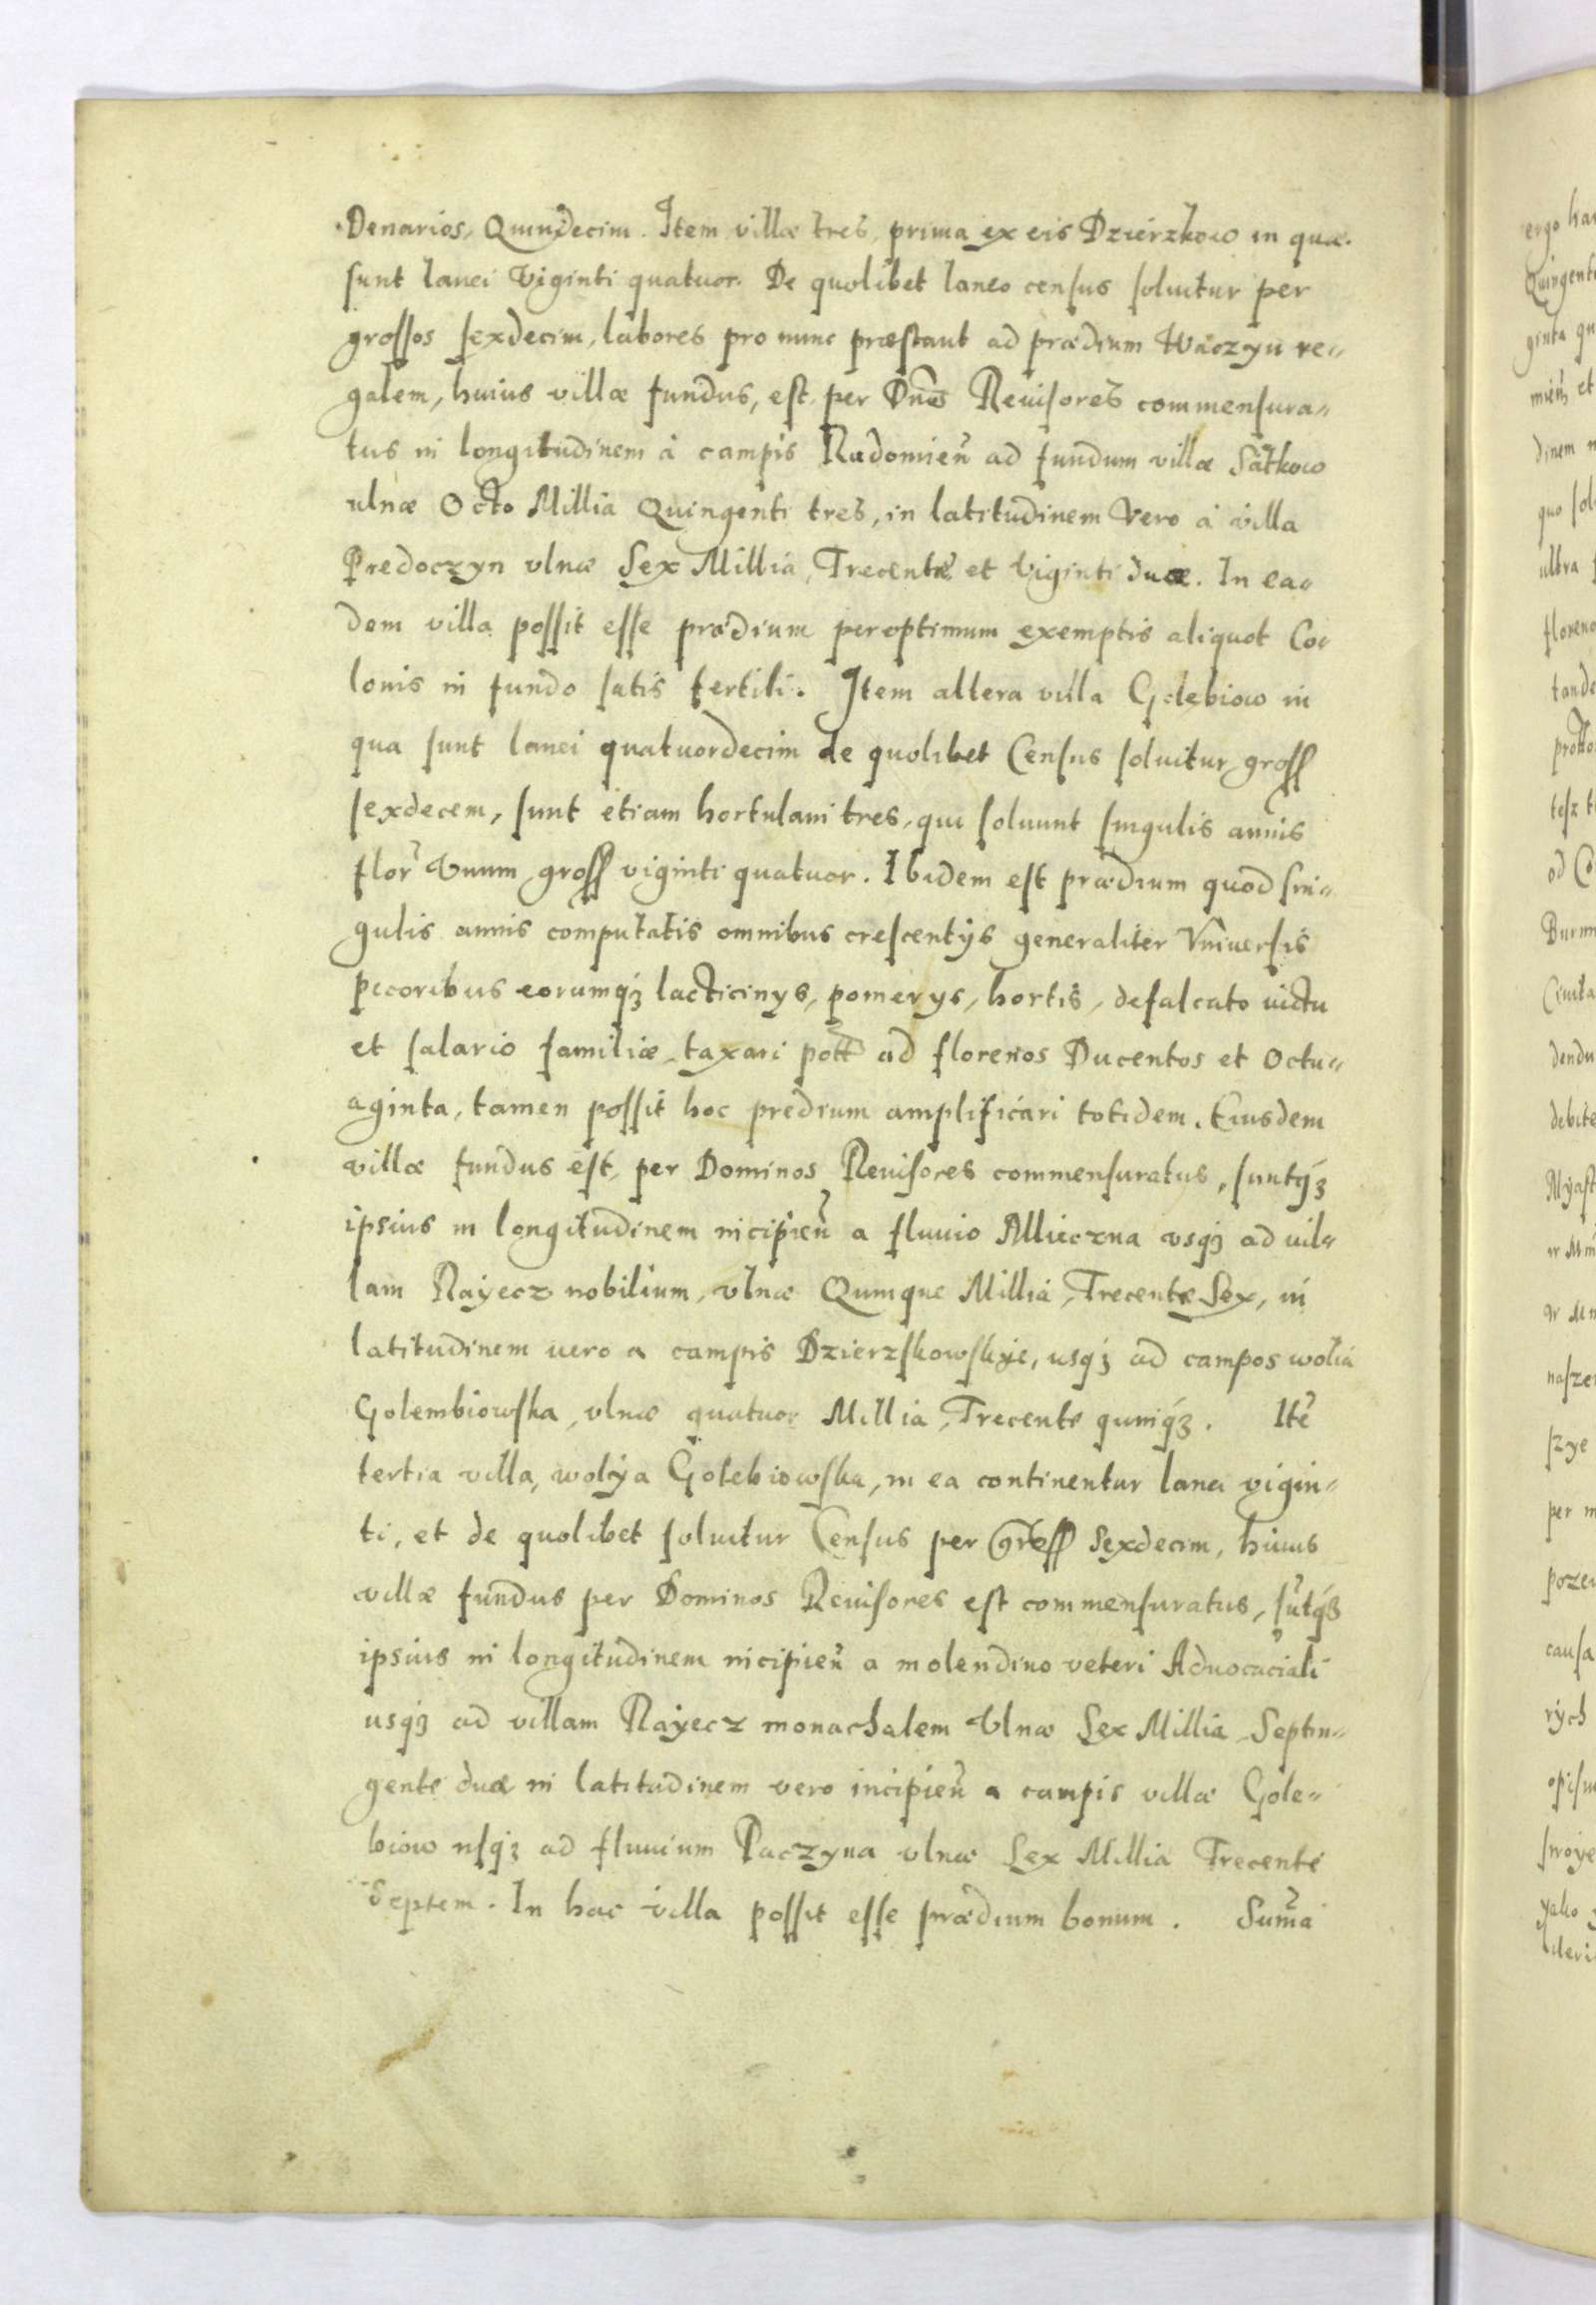 Denarios, Quindecim. Item villæ tres, prima ex eis Dzierzkow in qua
sunt lanei Viginti quatuor. De quolibet laneo census soluitur per
grossos sexdecim, labores pro nunc præstant ad prædium Waczyn re„
galem, huius villæ fundus, est per Dños Reuisores commensura„
tus in longitudinem à campis Radomieñ ad fundum villæ Satkow
ulnæ Octo Millia Quingenti tres, in latitudinem Vero à villa
Predoczyn vlnæ Sex Millia, Trecentæ et Viginti duæ. In ea„
dem villa possit esse prædium peroptimum exemptis aliquot Co„
lonis in fundo satis fertili. Item altera villa Golębiow in
qua sunt lanei quatuordecim de quolibet Census soluitur gross
sexdecem, sunt etiam hortulani tres, qui soluunt singulis annis
flor Vnum gross viginti quatuor. Ibidem est prædium quod sin„
gulis annis computatis omnibus crescentÿs generaliter Vniuersis
pecoribus eorumqȝ lacticinÿs, pomerÿs, hortis, defalcato uictu
et salario familiæ, taxari pott ad florenos Ducentos et Octu„
aginta, tamen possit hoc predium amplificari totidem. Eiusdem
villæ fundus est, per Dominos Reuisores commensuratus, suntqȝ
ipsius in longitudinem incipieñ a fluuio Mlieczna vsqȝ ad uil„
lam Rayecz nobilium, vlnæ Quinque Millia, Trecentæ Sex, in
latitudinem uero a campis Dzierzskowskye, usqȝ ad campos wolia
Golembiowska, vlnæ quatuor Millia, Trecente quinqȝ. Itē
tertia villa, wolÿa Golebiowska, in ea continentur lanei vigin„
ti, et de quolibet soluitur Census per Gross Sexdecim, huius
villæ fundus per Dominos Reuisores est commensuratus, sūtqȝ
ipsius in longitudinem incipieñ a molendino veteri Aduocaciali
usqȝ ad villam Rayecz monachalem Vlnæ Sex Millia Septin„
gente duæ in latitudinem vero incipieñ a campis villæ Gole„
biow usqȝ ad fluuium Paczyna vlnæ Sex Millia Trecente
Septem. In hac villa possit esse prædium bonum. Suma